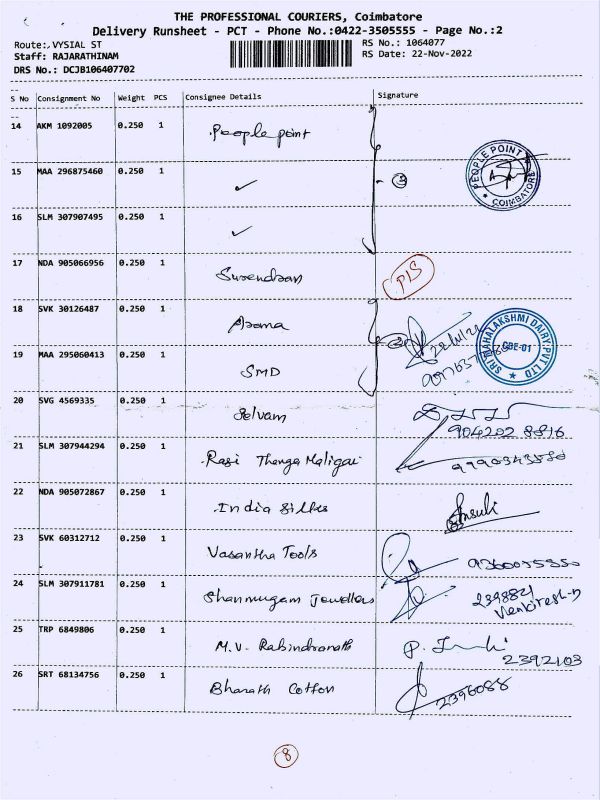 THE PROFESSIONAL COURIERS, Coimbatore
Delivery Runsheet - PCT - Phone No.:0422-3505555 - Page No.:2
Route:.VYSIAL ST
RS No.: 1064077
Staff: RAJARATHINAM
RS Date: 22-Nov-2022
DRS No.: DCJB106407702
S No Consignment No Weight PCS Consignee Details Signature
14 AKM 1092005 0.250 1 People point
15 MAA 296875460 0.250 1 ✓ 3 PEOPLE POINT COIMBATORE
16 SLM 307907495 0.250 1 ✓
17 NDA 905066956 0.250 1 Surendran PLS
18 SVK 30126487 0.250 1 Aroma
19 MAA 295060413 0.250 1 SMD SRI MAHALAKSHMI DAIRY PVT LTD CBE-01
20 SVG 4569335 0.250 1 Selvam 904202 8816
21 SLM 307944294 0.250 1 Rasi Thanga Maligai
22 NDA 905072867 0.250 1 India Silks
23 SVK 60312712 0.250 1 Vasantha Tools
24 SLM 307911781 0.250 1 Shanmugam Jewellers 2398821
25 TRP 6849806 0.250 1 M.V. Rabindranath 2392103
26 SRT 68134756 0.250 1 Bharath Cotton 2396088
8